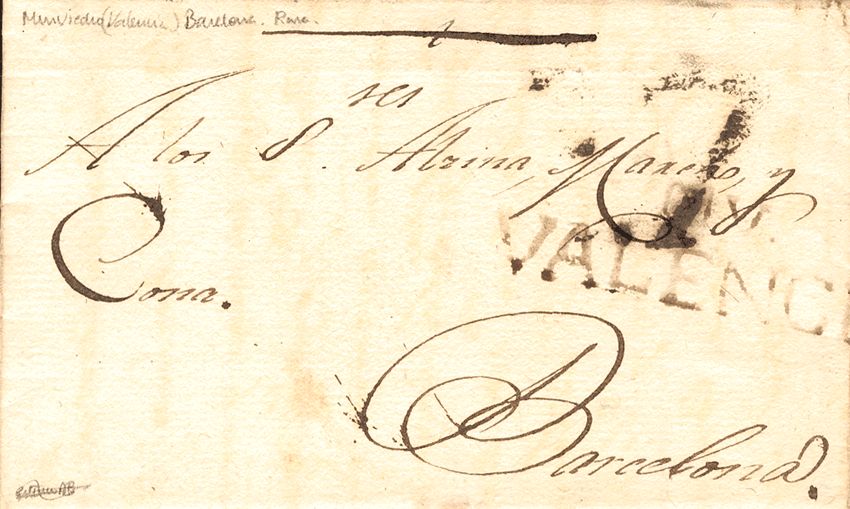 Murviedro (Valencia) Barcelona. Rara.
A los S.res Alzina, Marens, y
Cona.
7
VALENCI
Barcelona.